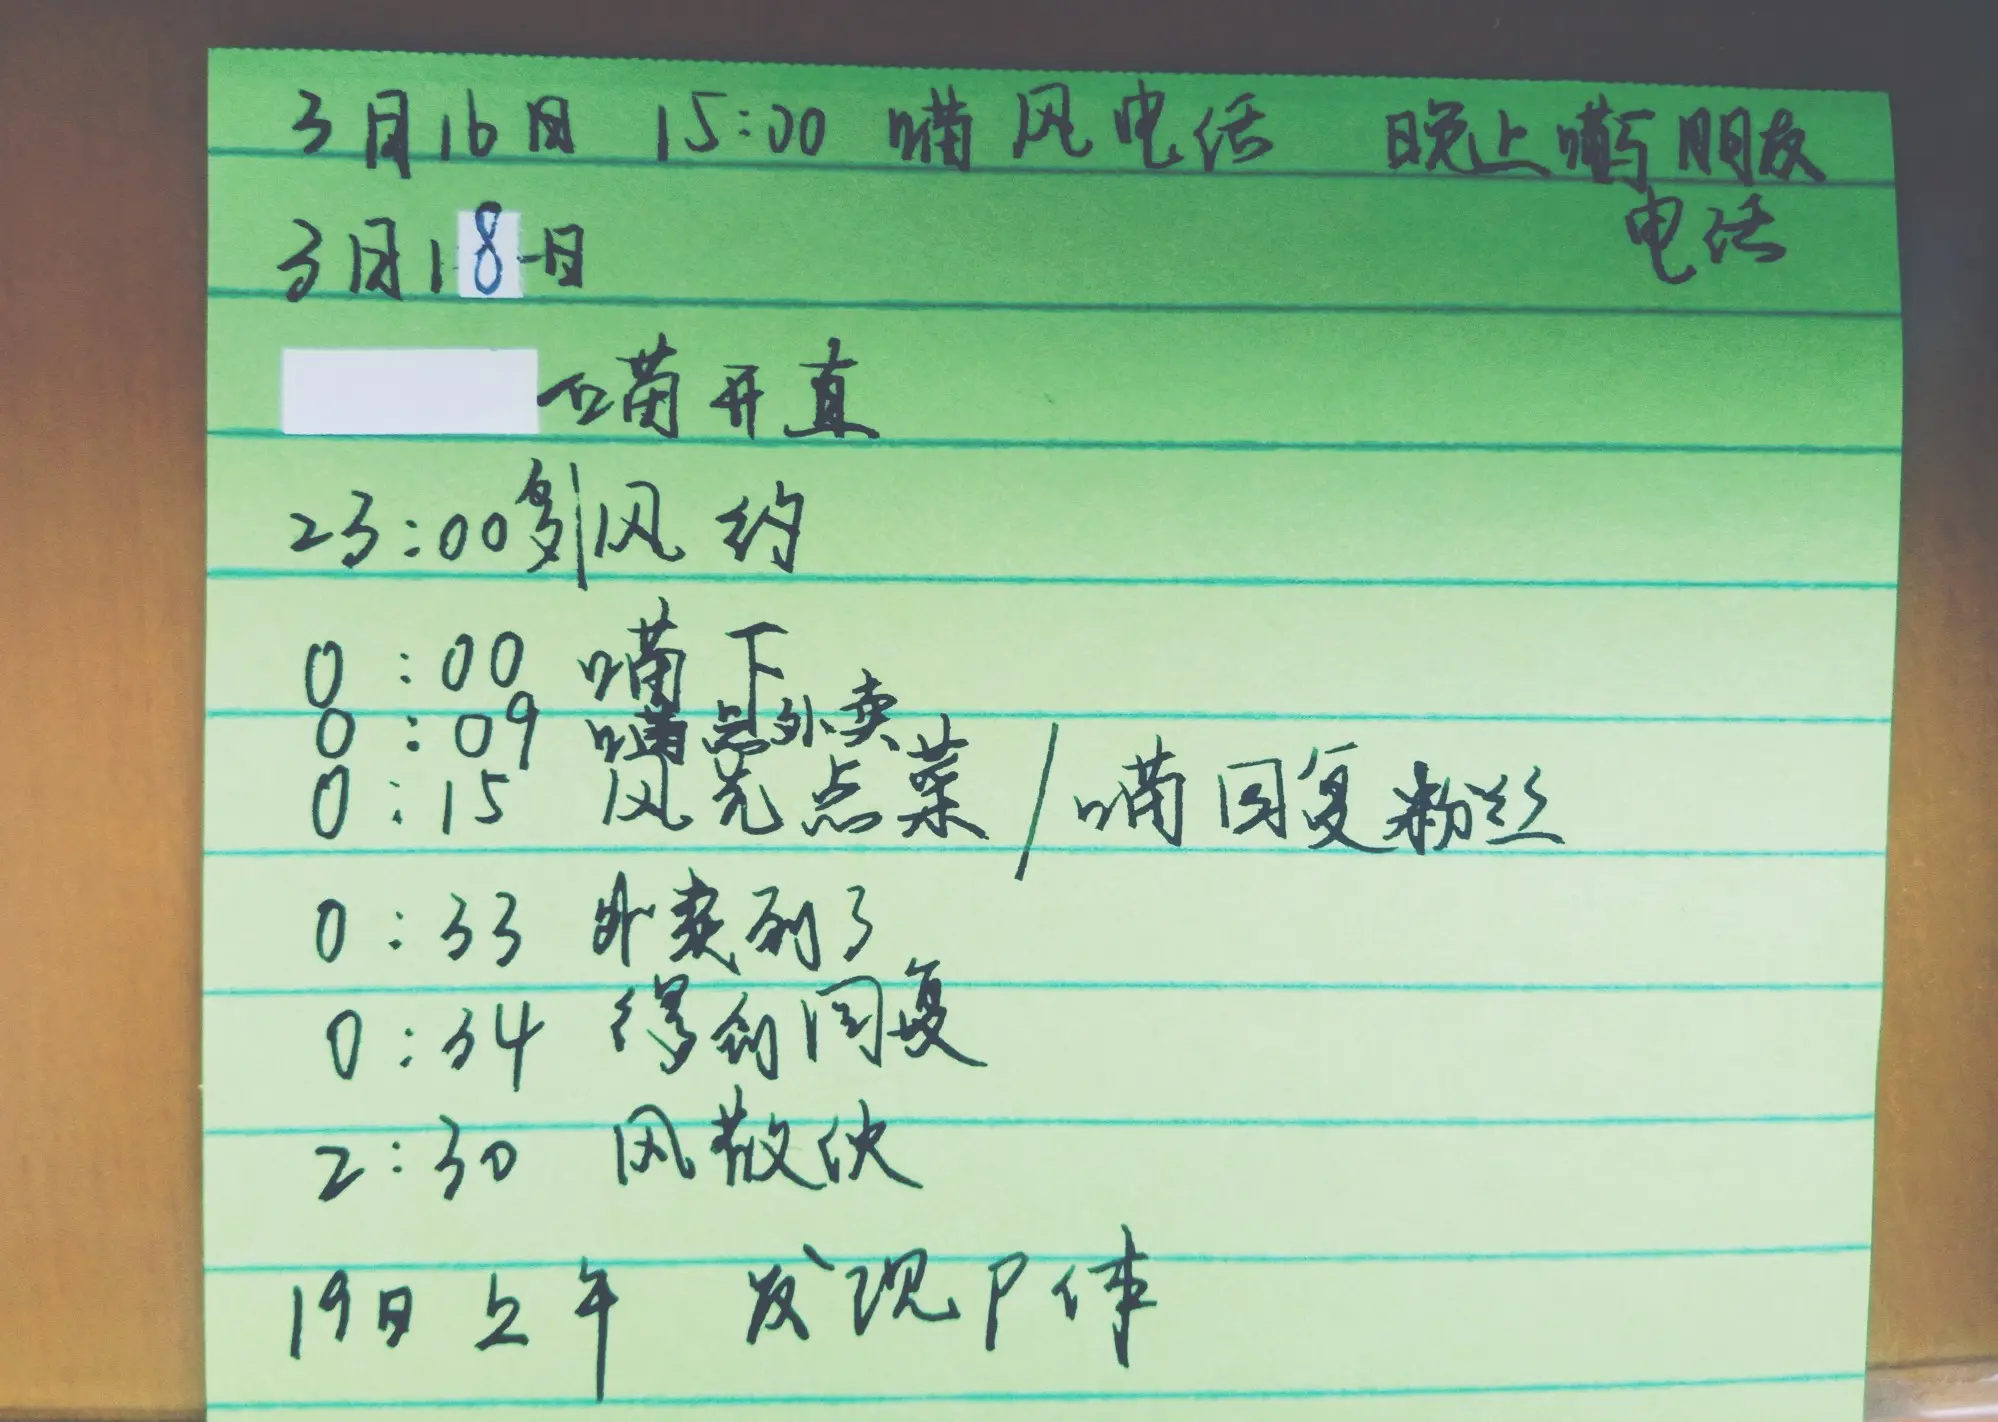 3月16日 15:00 喵风电话 晚上喵与朋友
电话
3月18日
喵开直
23:00 风约
0:00 喵下
0:09 喵点外卖
0:15 风先点菜/喵回复粉丝
0:33 外卖到了
0:34 得到回复
2:30 风散伙
19日上午 发现尸体